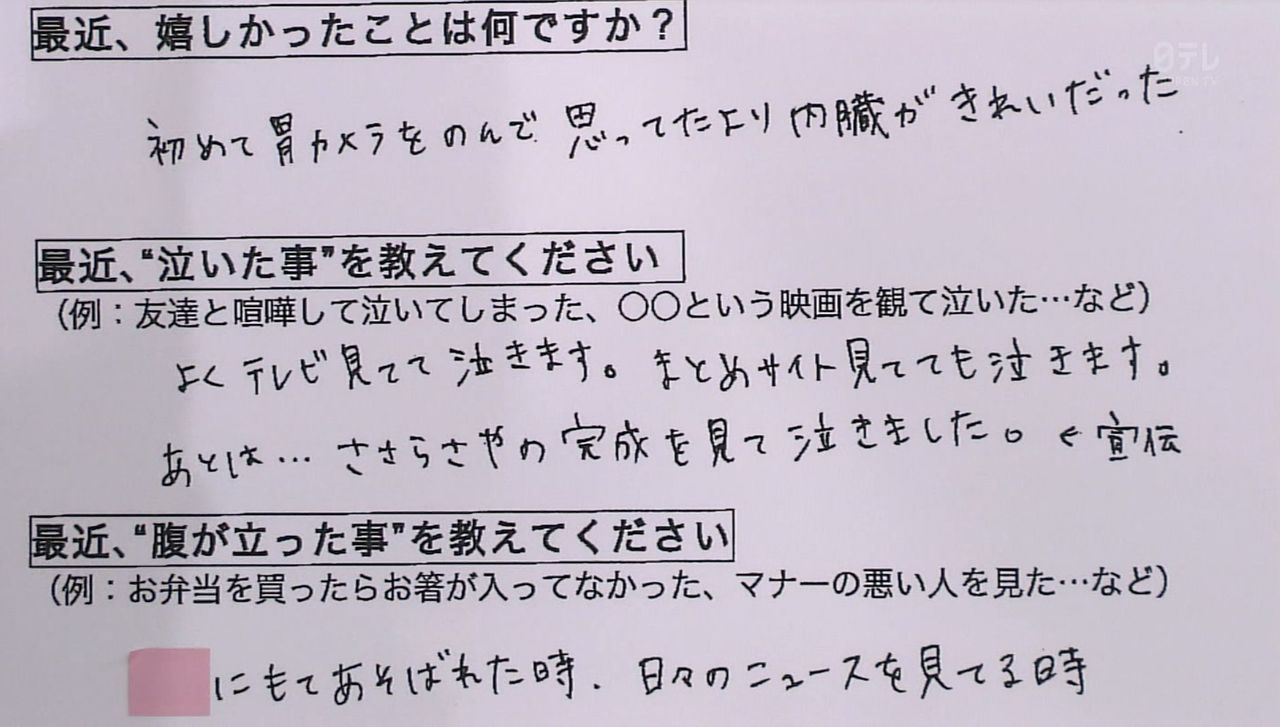 最近、嬉しかったことは何ですか？
日テレ
初めて胃カメラをのんで 思ってたより内臓がきれいだった.
最近、“泣いた事”を教えてください
（例：友達と喧嘩して泣いてしまった、〇〇という映画を観て泣いた…など）
よくテレビ見てて泣きます。まとめサイト見てても泣きます。
あとは… ささらさやの完成を見て泣きました。← 宣伝
最近、“腹が立った事”を教えてください
（例：お弁当を買ったらお箸が入ってなかった、マナーの悪い人を見た…など）
にもてあそばれた時. 日々のニュースを見てる時